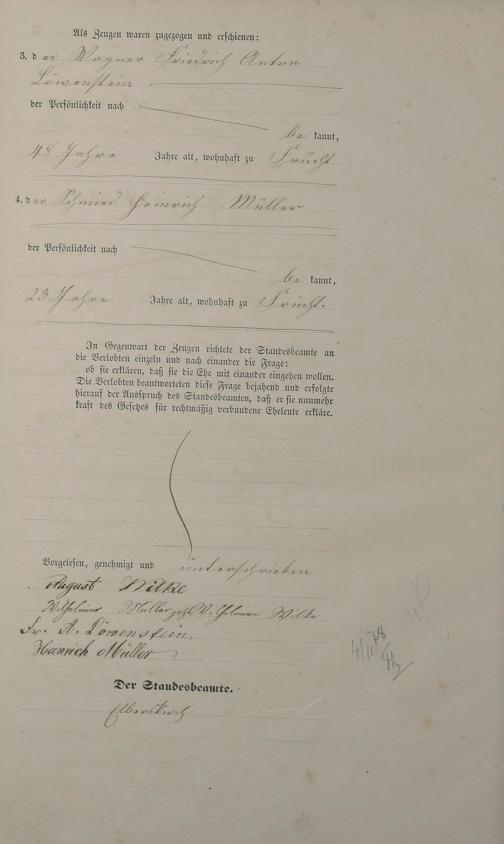 Als Zeugen waren zugezogen und erschienen:
3. der Wagner Friedrich Anton
Löwenstein
der Persönlichkeit nach
be kannt,
48 Jahre Jahre alt, wohnhaft zu Frücht
4. der Schmied Heinrich Müller
der Persönlichkeit nach
be kannt,
23 Jahre Jahre alt, wohnhaft zu Frücht.
In Gegenwart der Zeugen richtete der Standesbeamte an
die Verlobten einzeln und nach einander die Frage:
ob sie erklären, daß sie die Ehe mit einander eingehen wollen.
Die Verlobten beantworteten diese Frage bejahend und erfolgte
hierauf der Ausspruch des Standesbeamten, daß er sie nunmehr
kraft des Gesetzes für rechtmäßig verbundene Eheleute erkläre.
Vorgelesen, genehmigt und unterschrieben
August Wilke
Wilhelmine Müller Wilhelmine Wilke
Fr. A. Löwenstein.
Heinrich Müller
Der Standesbeamte.
Elberskirch